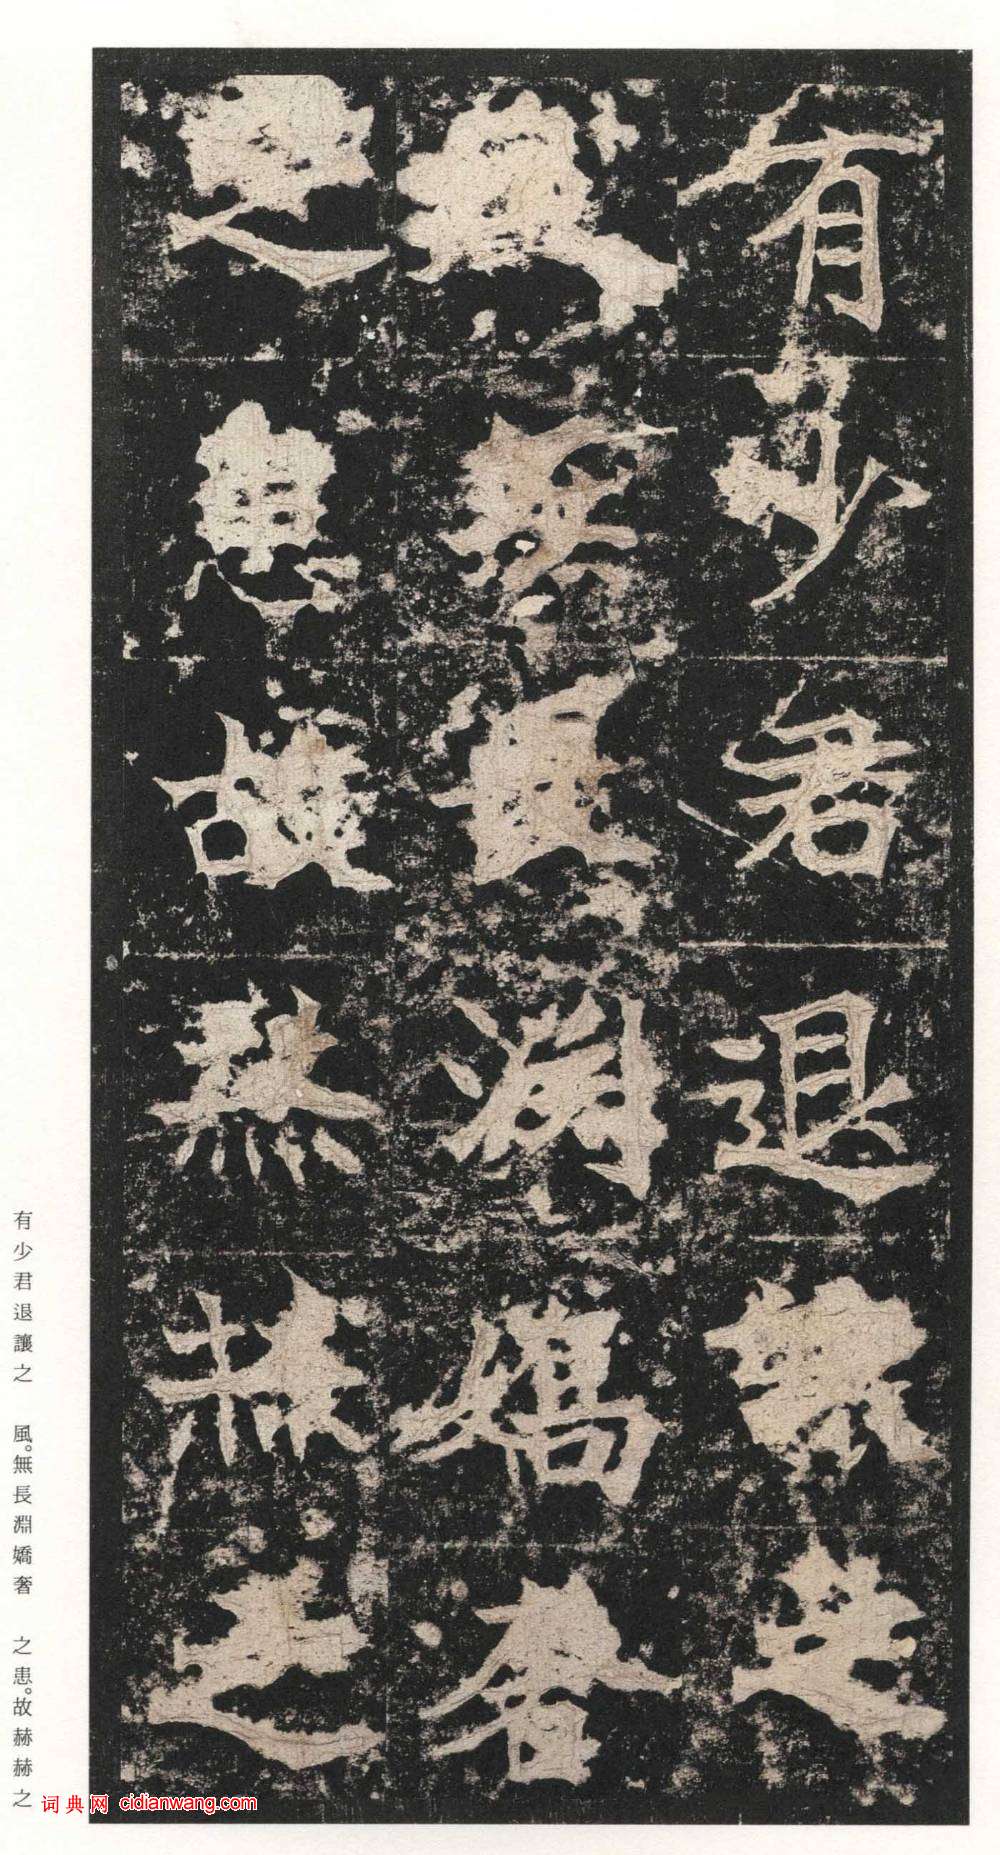 有少君退讓之
風無長淵嬌奢
之患故赫赫之
有少君退讓之　風。無長淵嬌奢　之患。故赫赫之
词典网 cidianwang.com